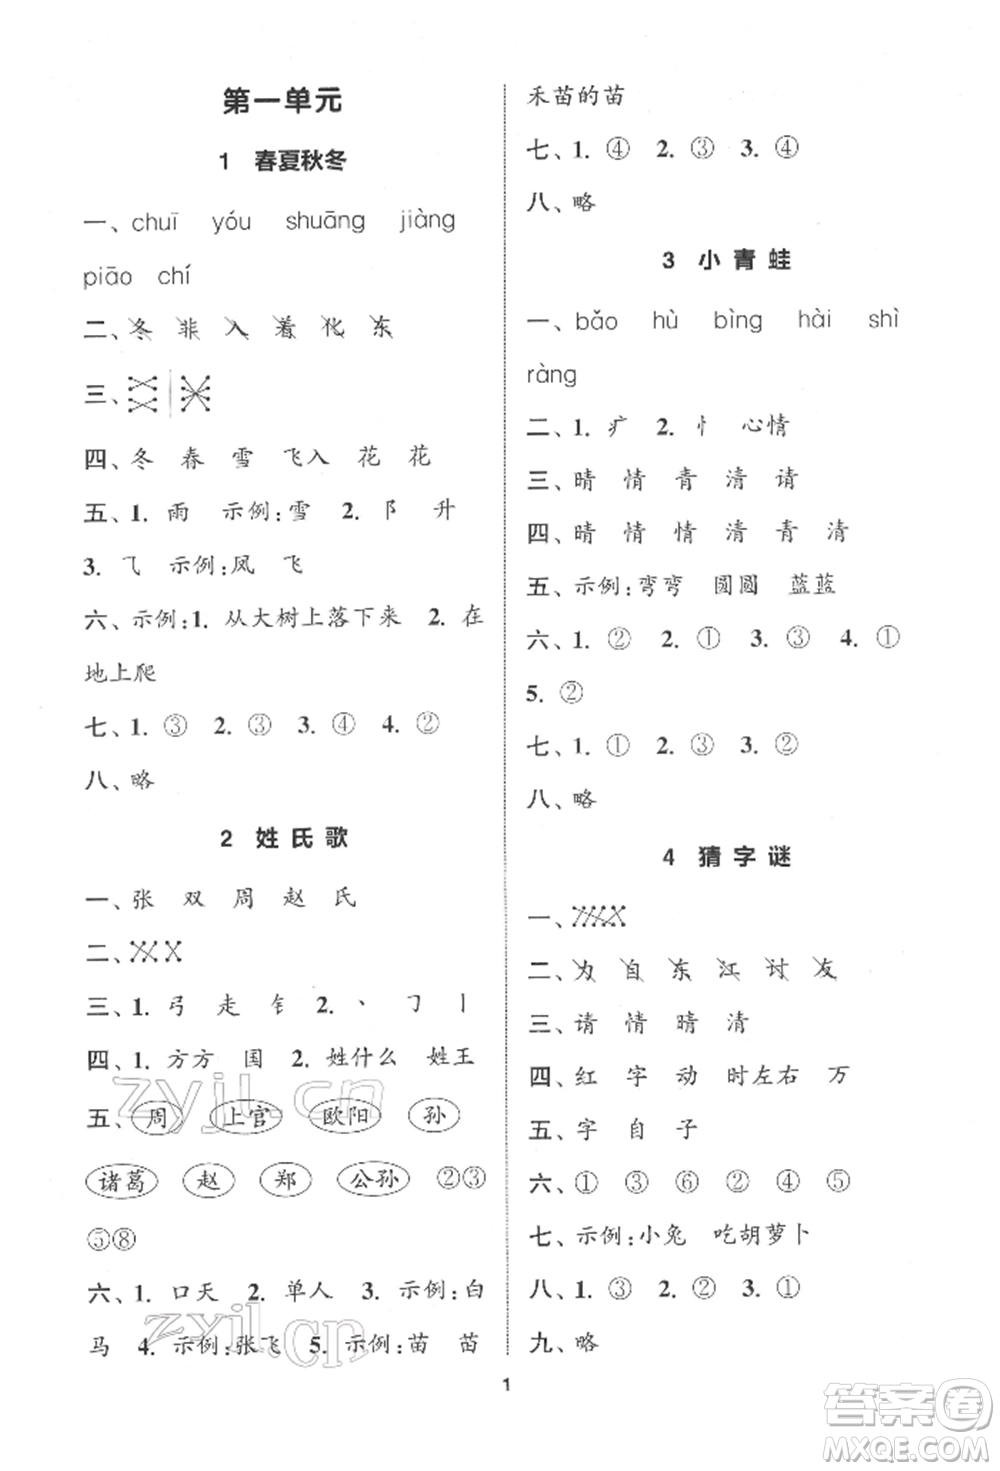 第一单元
1 春夏秋冬
一、chuī yóu shuāng jiàng
piāo chí
二、冬 非 入 着 化 东
三、
四、冬 春 雪 飞入 花 花
五、1. 雨 示例:雪 2. 阝 升
3. ⺄ 示例:凤 飞
六、示例:1. 从大树上落下来 2. 在
地上爬
七、1. ③ 2. ③ 3. ④ 4. ②
八、略
2 姓氏歌
一、张 双 周 赵 氏
二、
三、1. 弓 走 钅 2. 丶 ㇆ 丨
四、1. 方方 国 2. 姓什么 姓王
五、周 上官 欧阳 孙
诸葛 赵 郑 公孙 ②③
⑤⑧
六、1. 口天 2. 单人 3. 示例:白
马 4. 示例:张飞 5. 示例:苗 苗
禾苗的苗
七、1. ④ 2. ③ 3. ④
八、略
3 小青蛙
一、bǎo hù bìng hài shì
ràng
二、1. 疒 2. 忄 心情
三、晴 情 青 清 请
四、晴 情 情 清 青 清
五、示例:弯弯 圆圆 蓝蓝
六、1. ② 2. ① 3. ③ 4. ①
5. ②
七、1. ① 2. ③ 3. ②
八、略
4 猜字谜
一、
二、为 自 东 江 讨 友
三、请 情 晴 清
四、红 字 动 时左右 万
五、字 自 子
六、① ③ ⑥ ② ④ ⑤
七、示例:小兔 吃胡萝卜
八、1. ③ 2. ② 3. ①
九、略
1
zyjl.cn
zyjl.cn
答案卷
MXQE.COM